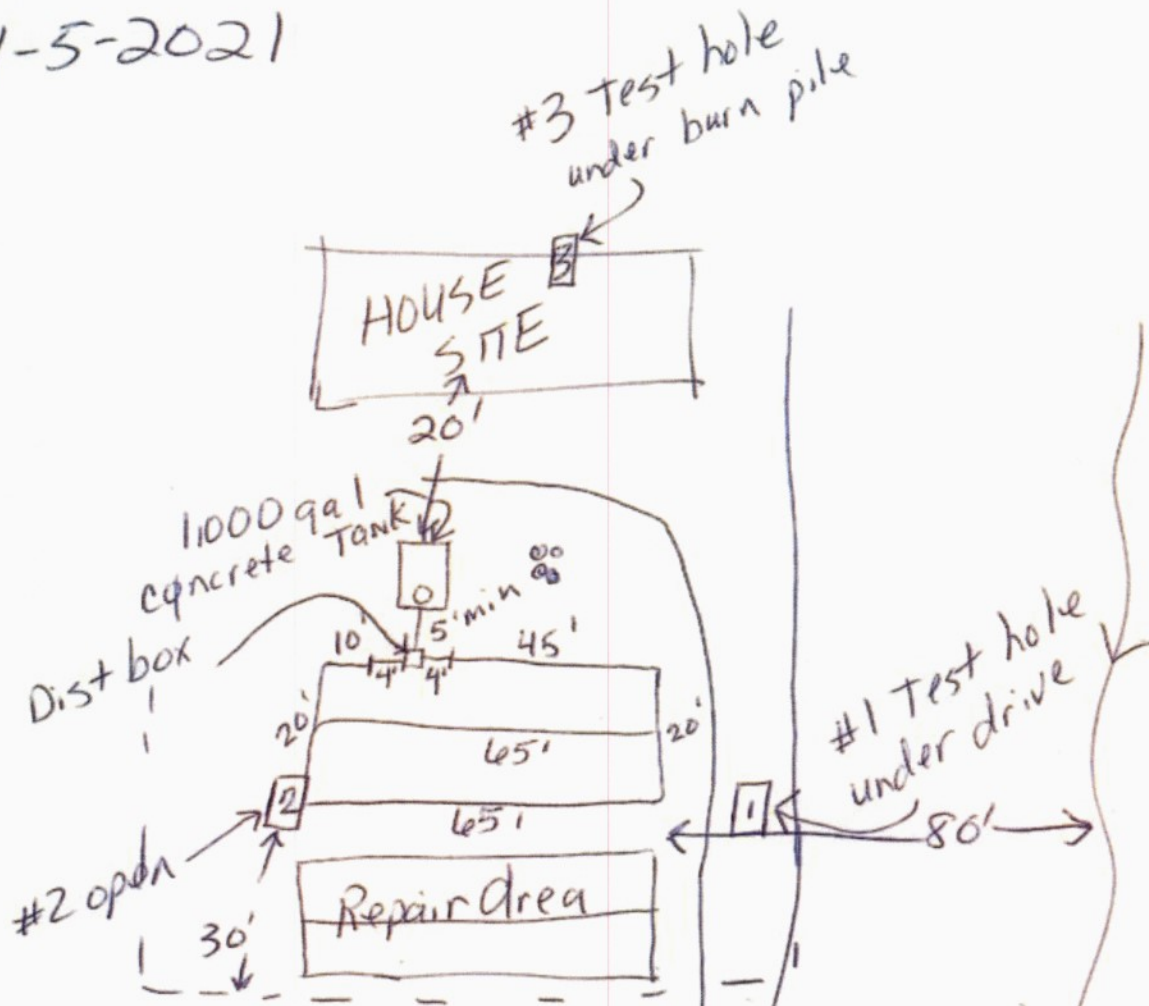 -5-2021
#3 Test hole
under burn pile
3
HOUSE
SITE
20'
1,000 gal
concrete Tank
5' min
Dist box
10'
4'
4'
45'
20'
20'
65'
65'
2
#2 open
30'
Repair Area
#1 Test hole
under drive
1
80'